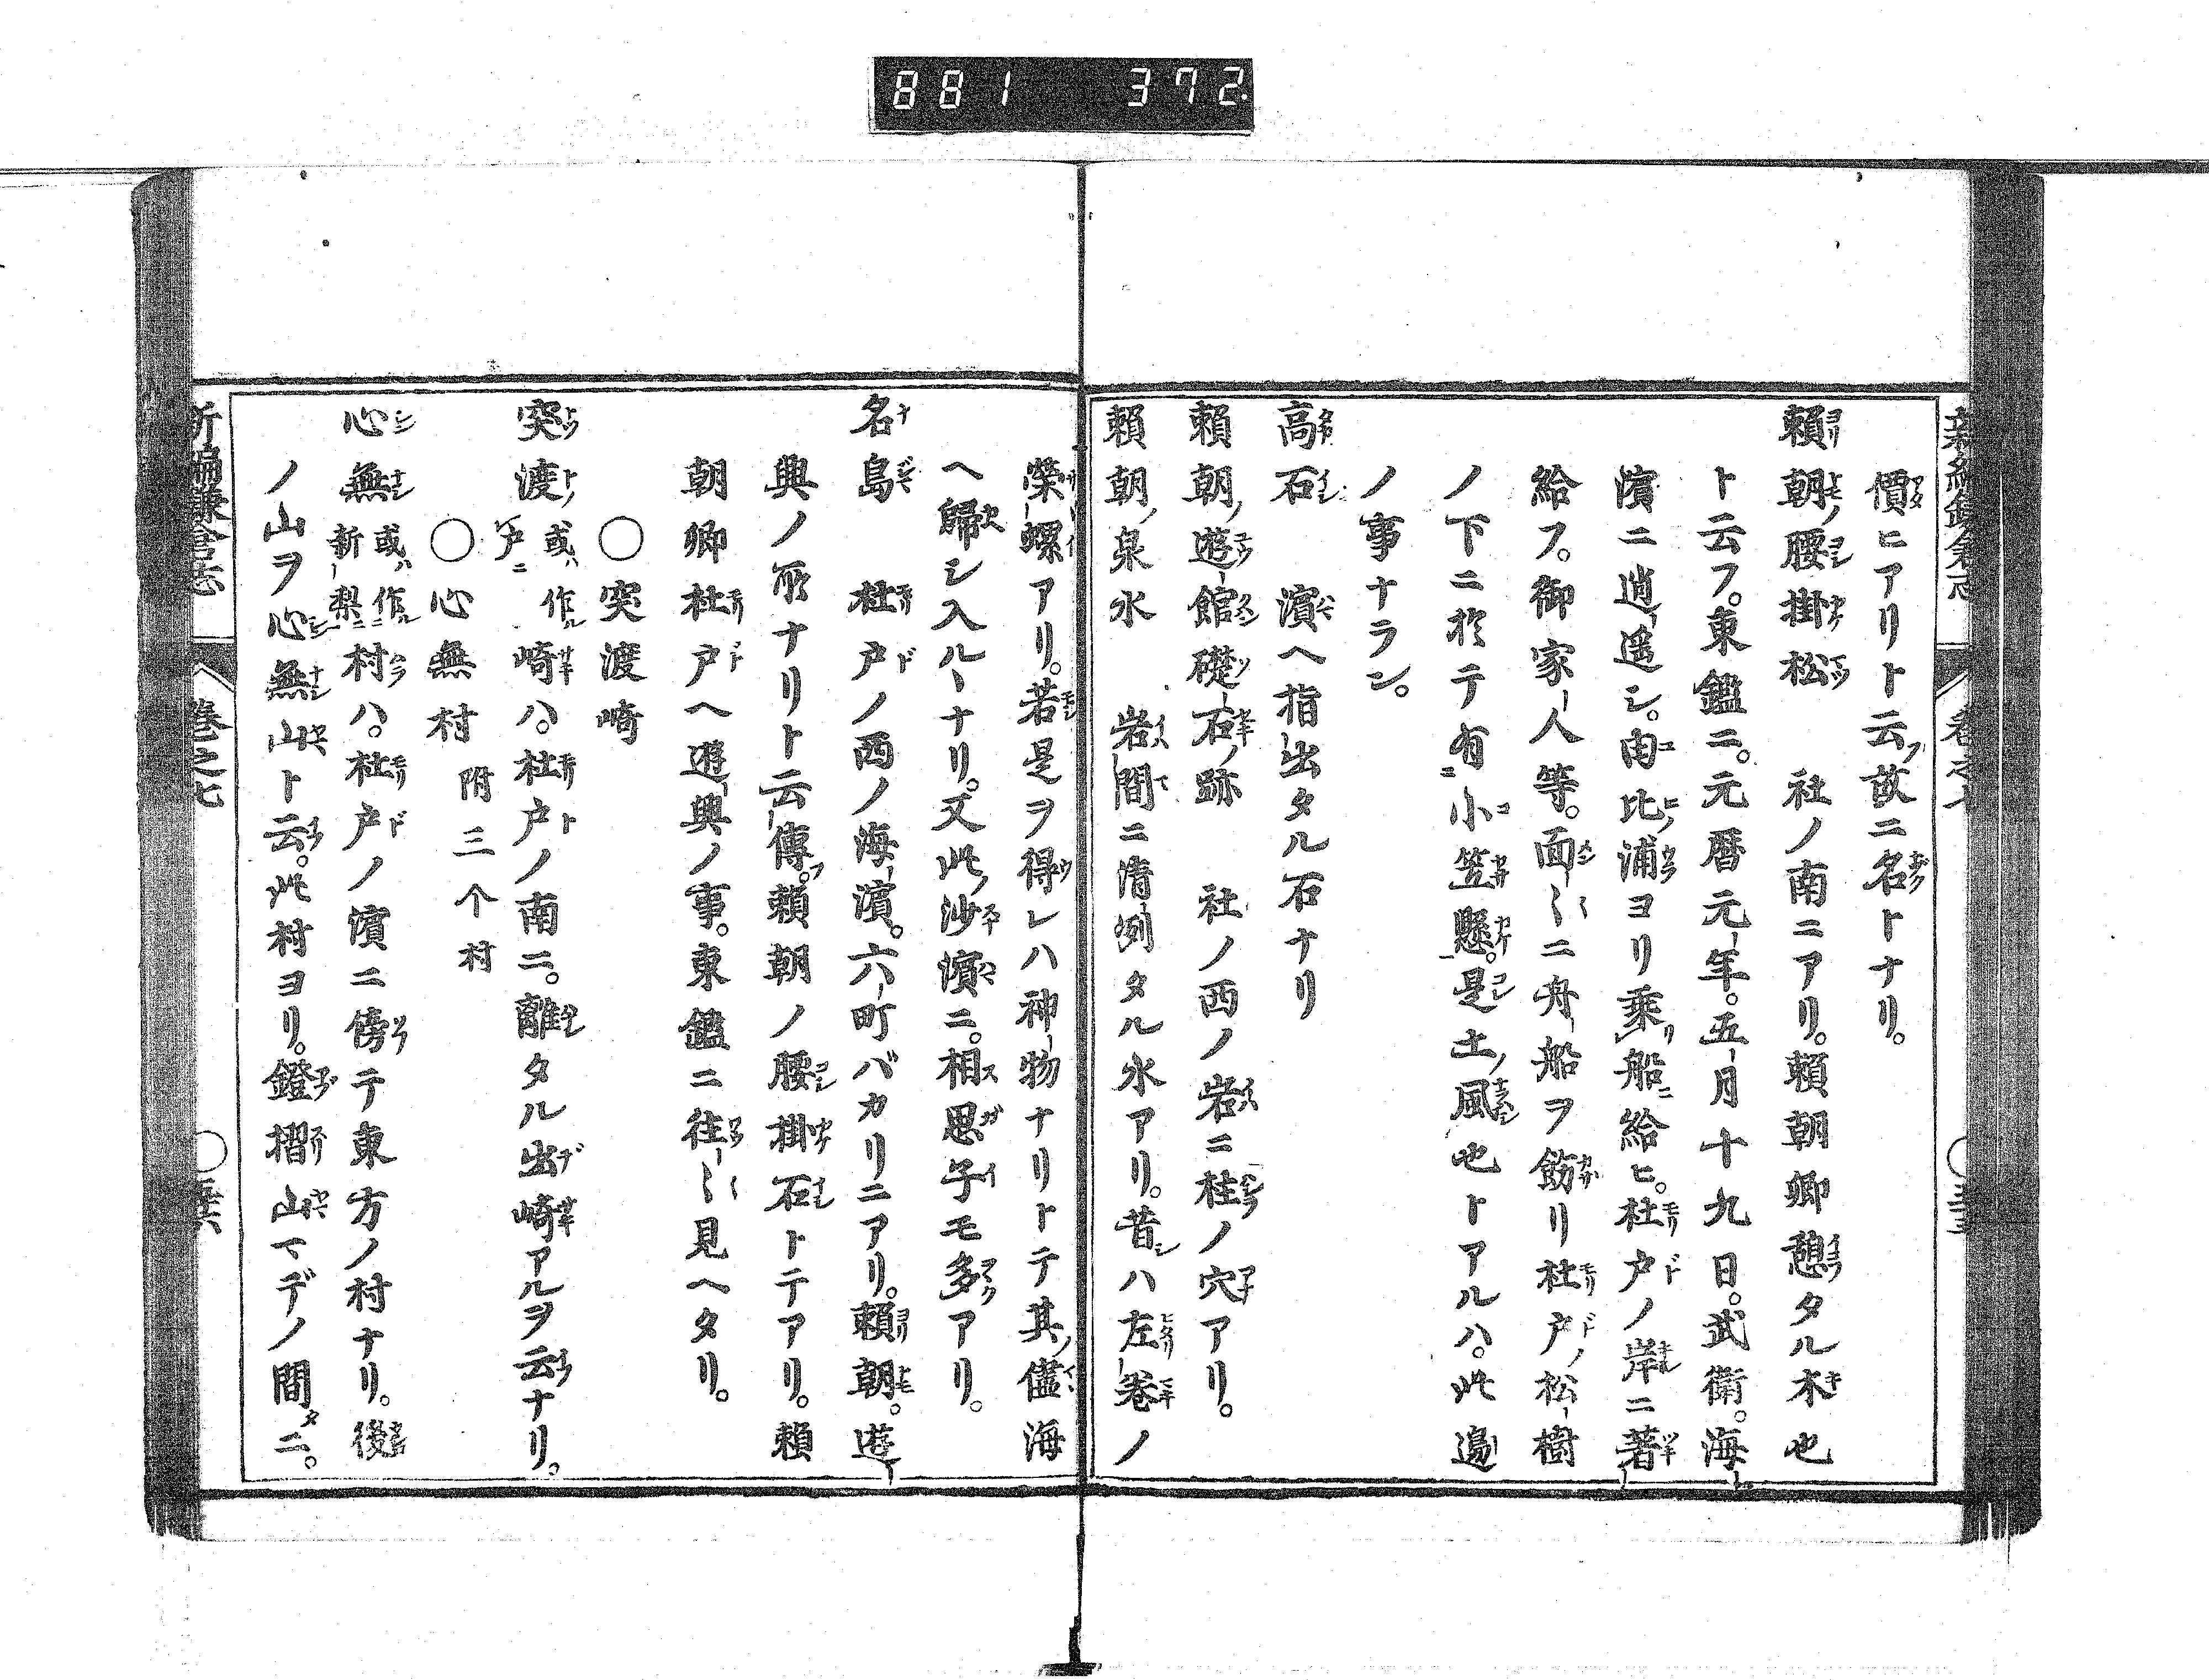 881 372.
新編鎌倉志 卷之七
價ヒアリト云フ故ニ名トナリ。
賴朝ノ腰掛松 社ノ南ニアリ。賴朝卿憩タル木也
ト云フ。東鑑ニ。元曆元年。五月十九日。武衞。海
濱ニ逍遥シ。由比ノ浦ヨリ乘船ニ給ヒ。杜戸ノ岸ニ著
給フ。御家人等。面〻ニ舟船ヲ餝リ杜戸ノ松樹
ノ下ニ於テ有小笠懸。是土ノ風也トアルハ。此邊
ノ事ナラン。
高石 濱ヘ指出タル石ナリ
賴朝ノ遊館礎石ノ跡 社ノ西ノ岩ニ柱ノ穴アリ。
賴朝ノ泉水 岩間ニ清冽タル水アリ。昔シハ左卷ノ
榮螺アリ。若是ヲ得レハ神物ナリトテ其ノ儘海
ヘ歸シ入ルヽナリ。又此ノ沙濱ニ。相思子モ多アリ。
名島 杜戸ノ西ノ海濱。六町バカリニアリ。賴朝。遊
興ノ所ナリト云傳フ。賴朝ノ腰掛石トテアリ。賴
朝卿杜戸ヘ遊興ノ事。東鑑ニ往〻見ヘタリ。
○突渡崎
突渡或ハ作ル戸ニ崎ハ。杜戸ノ南ニ。離タル出崎アルヲ云ナリ。
○心無村 附三个村
心無或ハ作ル新梨ニ村ハ。杜戸ノ濱ニ傍テ東方ノ村ナリ。後
ノ山ヲ心無山ト云。此村ヨリ。鐙摺山マデノ間タニ。
新編鎌倉志 卷之七